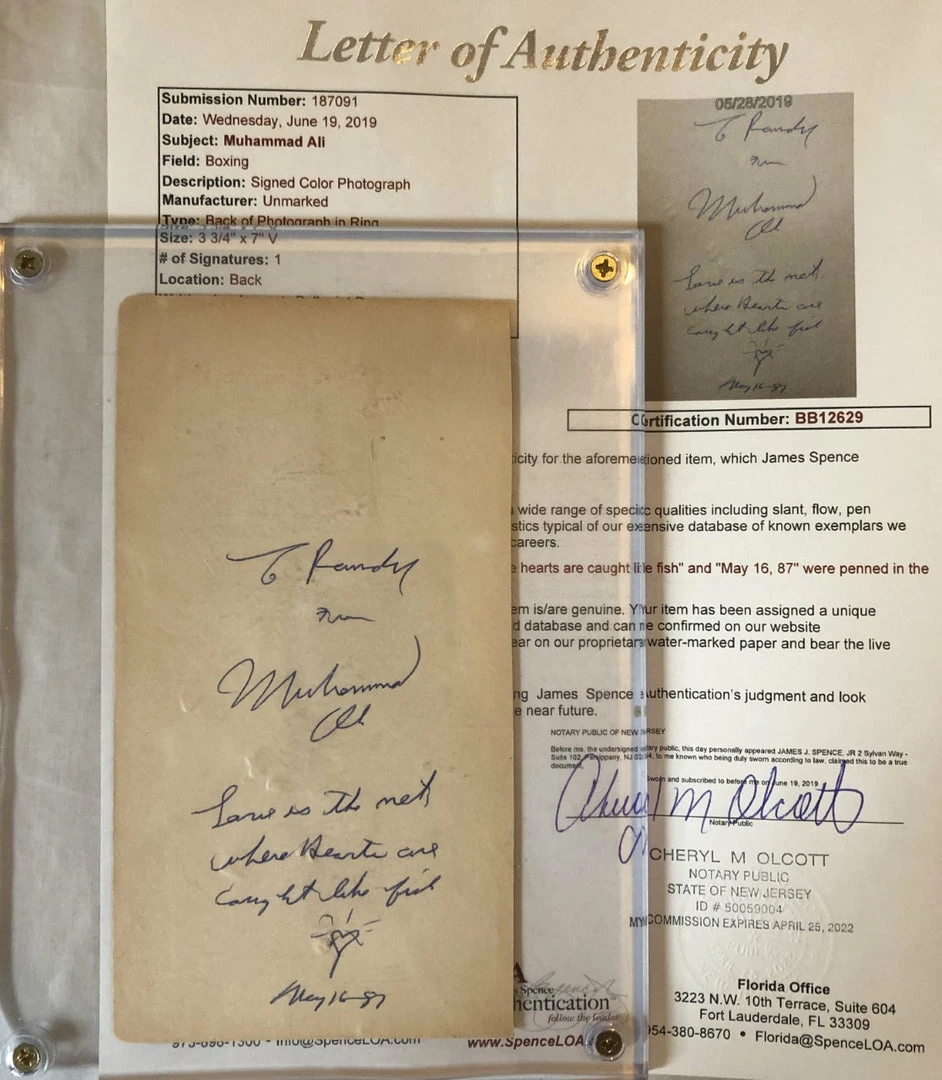 Letter of Authenticity
Submission Number: 187091
Date: Wednesday, June 19, 2019
Subject: Muhammad Ali
Field: Boxing
Description: Signed Color Photograph
Manufacturer: Unmarked
Type: Back of Photograph in Ring
Size: 3 3/4" x 7" V
# of Signatures: 1
Location: Back
05/28/2019
To Randy
from
Muhammad
Ali
Love is the net
where Hearts are
caught like fish
May 16-87
Certification Number: BB12629
icity for the aforementioned item, which James Spence
wide range of specific qualities including slant, flow, pen
stics typical of our extensive database of known exemplars we
careers.
e hearts are caught like fish" and "May 16, 87" were penned in the
em is/are genuine. Your item has been assigned a unique
d database and can be confirmed on our website
ear on our proprietary water-marked paper and bear the live
ng James Spence Authentication's judgment and look
e near future.
NOTARY PUBLIC OF NEW JERSEY
Before me, the undersigned notary public, this day personally appeared JAMES J. SPENCE, JR 2 Sylvan Way -
Suite 102, Parsippany, NJ to me known who being duly sworn according to law, claimed this to be a true
document.
Sworn and subscribed to before me on June 19, 2019
Cheryl M Olcott
Notary Public
CHERYL M OLCOTT
NOTARY PUBLIC
STATE OF NEW JERSEY
ID # 50059004
MY COMMISSION EXPIRES APRIL 25, 2022
To Randy
from
Muhammad
Ali
Love is the net
where Hearts are
caught like fish
May 16-87
Spence
hentication
follow the leader
Florida Office
3223 N.W. 10th Terrace, Suite 604
Fort Lauderdale, FL 33309
954-380-8670 • Florida@SpenceLOA.com
973-898-1300 • info@SpenceLOA.com
www.SpenceLOA